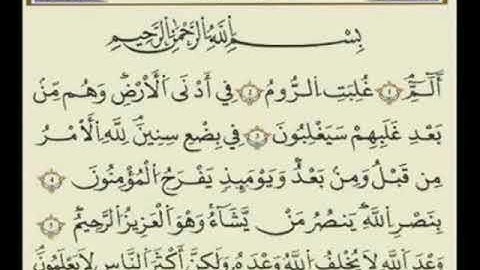 بِسْمِ اللَّهِ الرَّحْمَٰنِ الرَّحِيمِ
الٓمٓ ١ غُلِبَتِ الرُّومُ ٢ فِي أَدْنَى الْأَرْضِ وَهُم مِّن
بَعْدِ غَلَبِهِمْ سَيَغْلِبُونَ ٣ فِي بِضْعِ سِنِينَ لِلَّهِ الْأَمْرُ
مِن قَبْلُ وَمِن بَعْدُ وَيَوْمَئِذٍ يَفْرَحُ الْمُؤْمِنُونَ ٤
بِنَصْرِ اللَّهِ يَنصُرُ مَن يَشَاءُ وَهُوَ الْعَزِيزُ الرَّحِيمُ ٥
وَعْدَ اللَّهِ لَا يُخْلِفُ اللَّهُ وَعْدَهُ وَلَٰكِنَّ أَكْثَرَ النَّاسِ لَا يَعْلَمُونَ